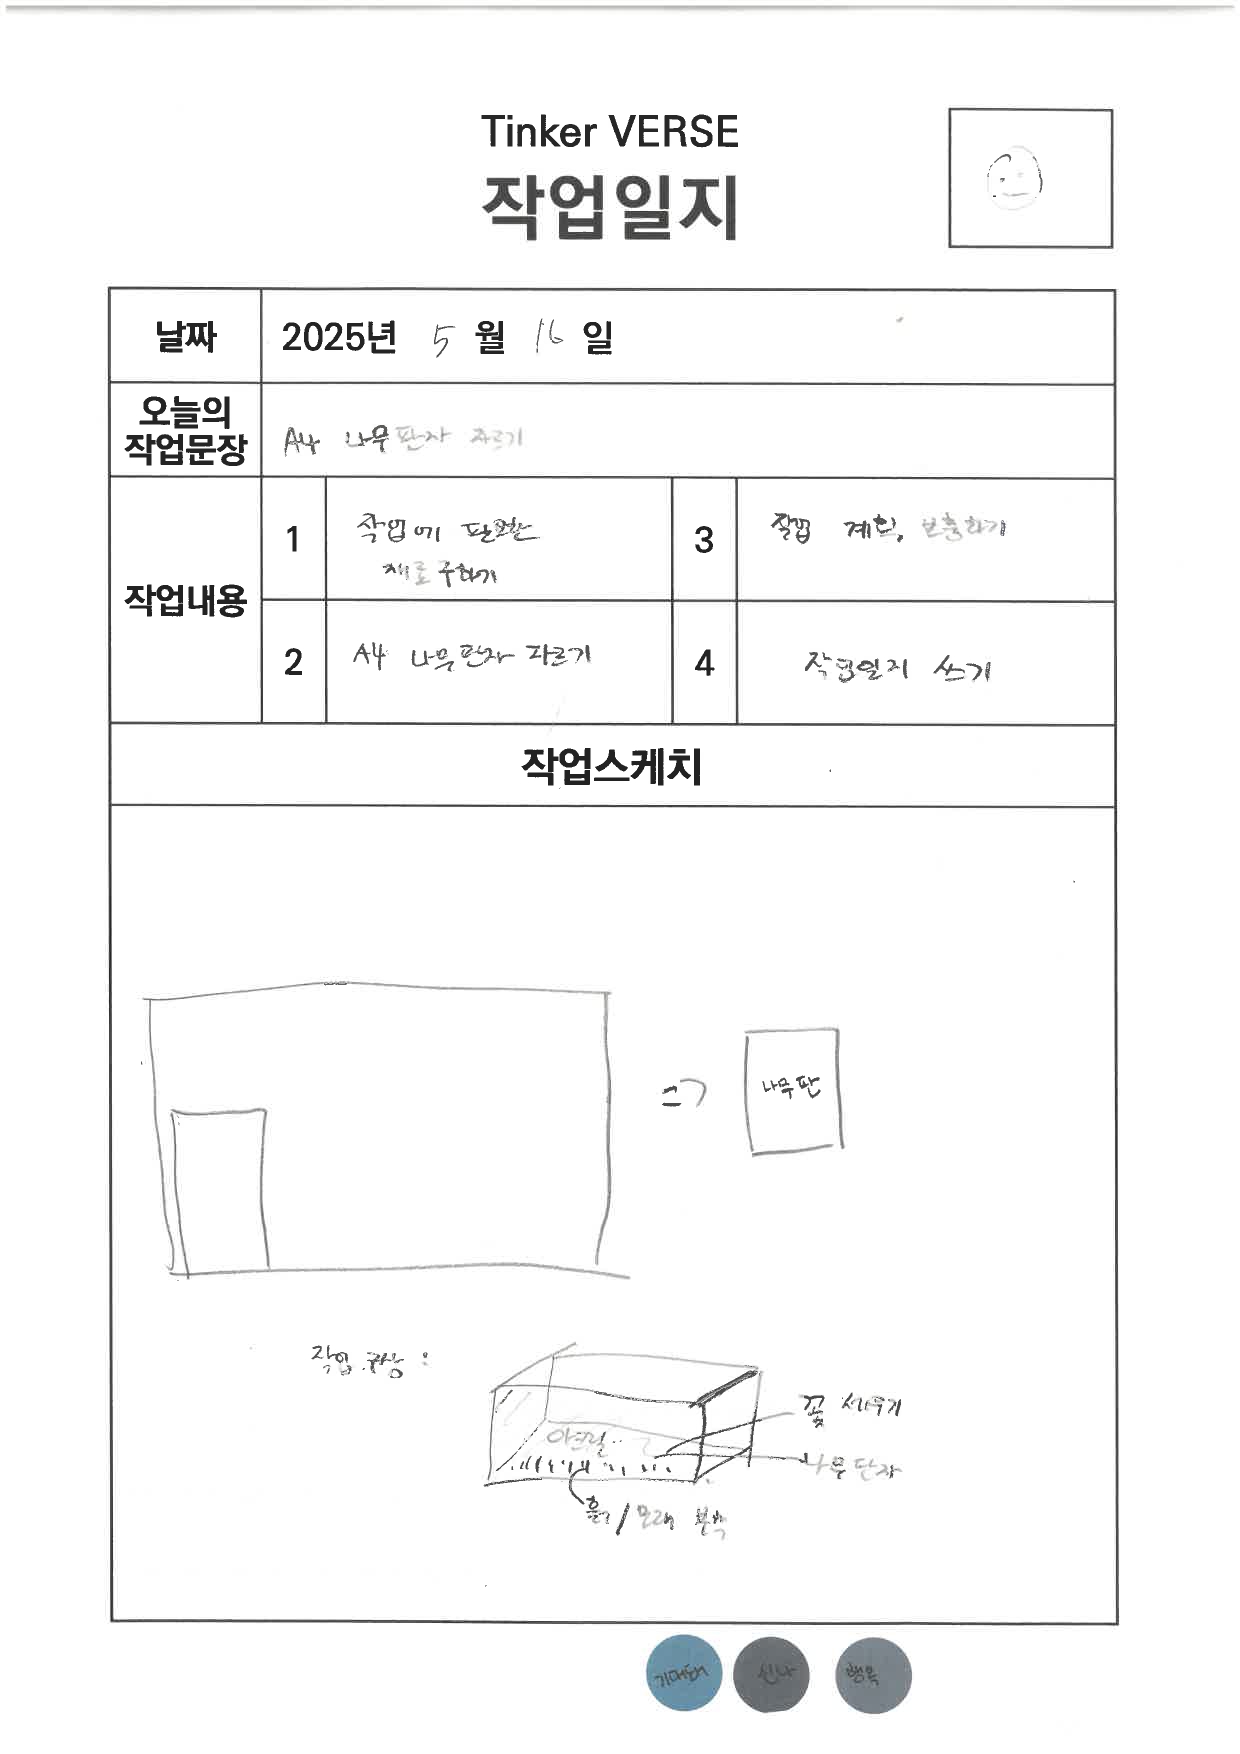 Tinker VERSE
작업일지
날짜
2025년 5 월 16 일
오늘의
작업문장
A4 나무판자 자르기
작업내용
1
작업에 필요한
재료 구하기
3
작업 계획, 보충하기
2
A4 나무판자 자르기
4
작업일지 쓰기
작업스케치
나무판
작업 구상 :
꽃 세우기
아크릴
나무 판자
흙 / 모래 부착
기대돼
신나
행복